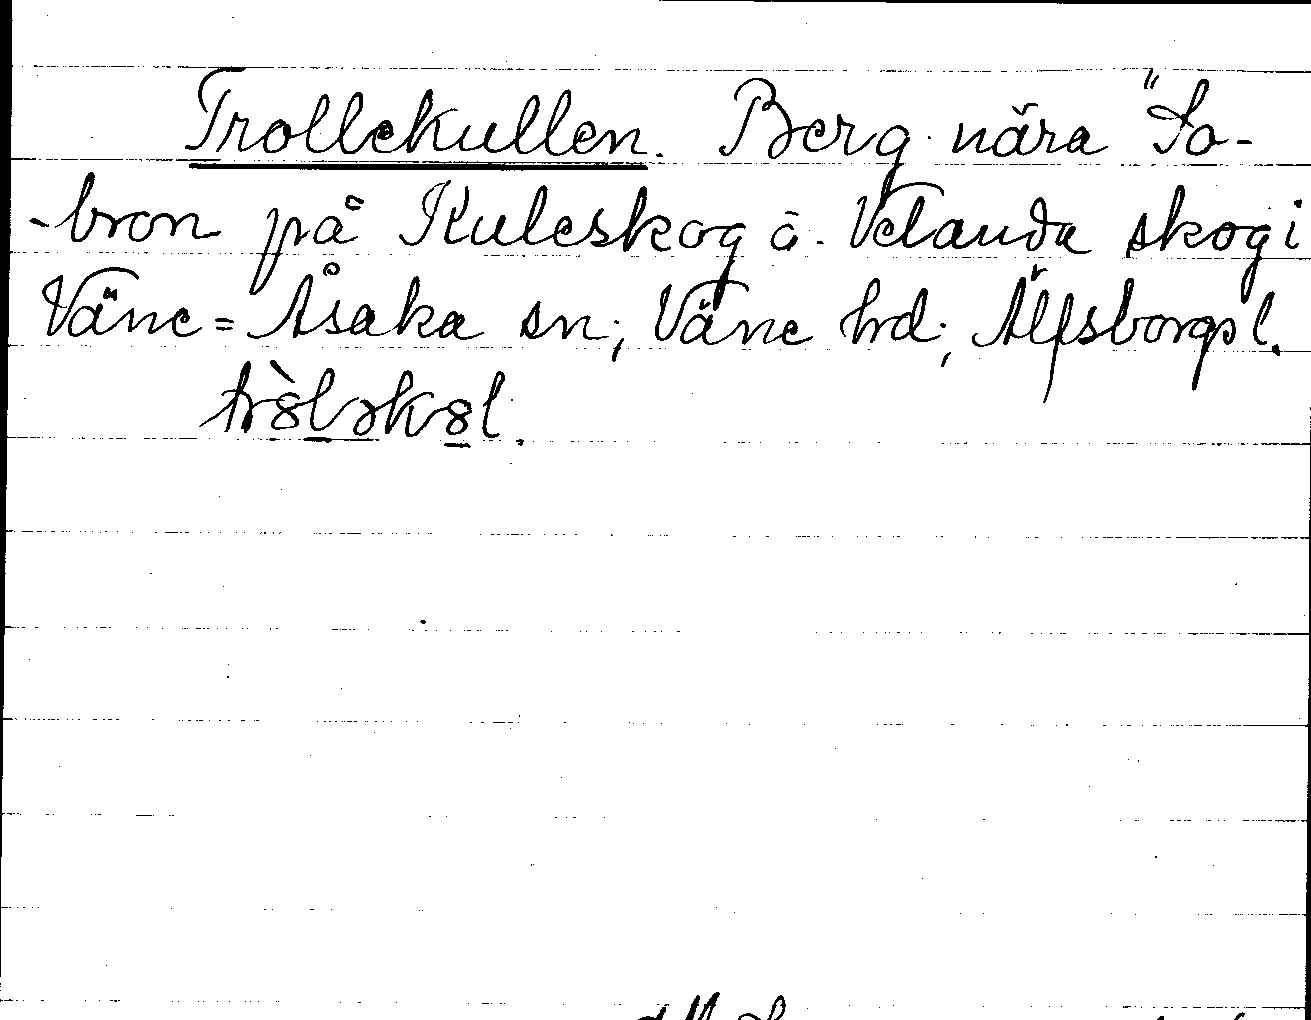 Trollekullen. Berg nära "So-
-bron på Kuleskog å. Velanda skog i
Väne = Åsaka sn; Väne hd; Älfsborgs l.